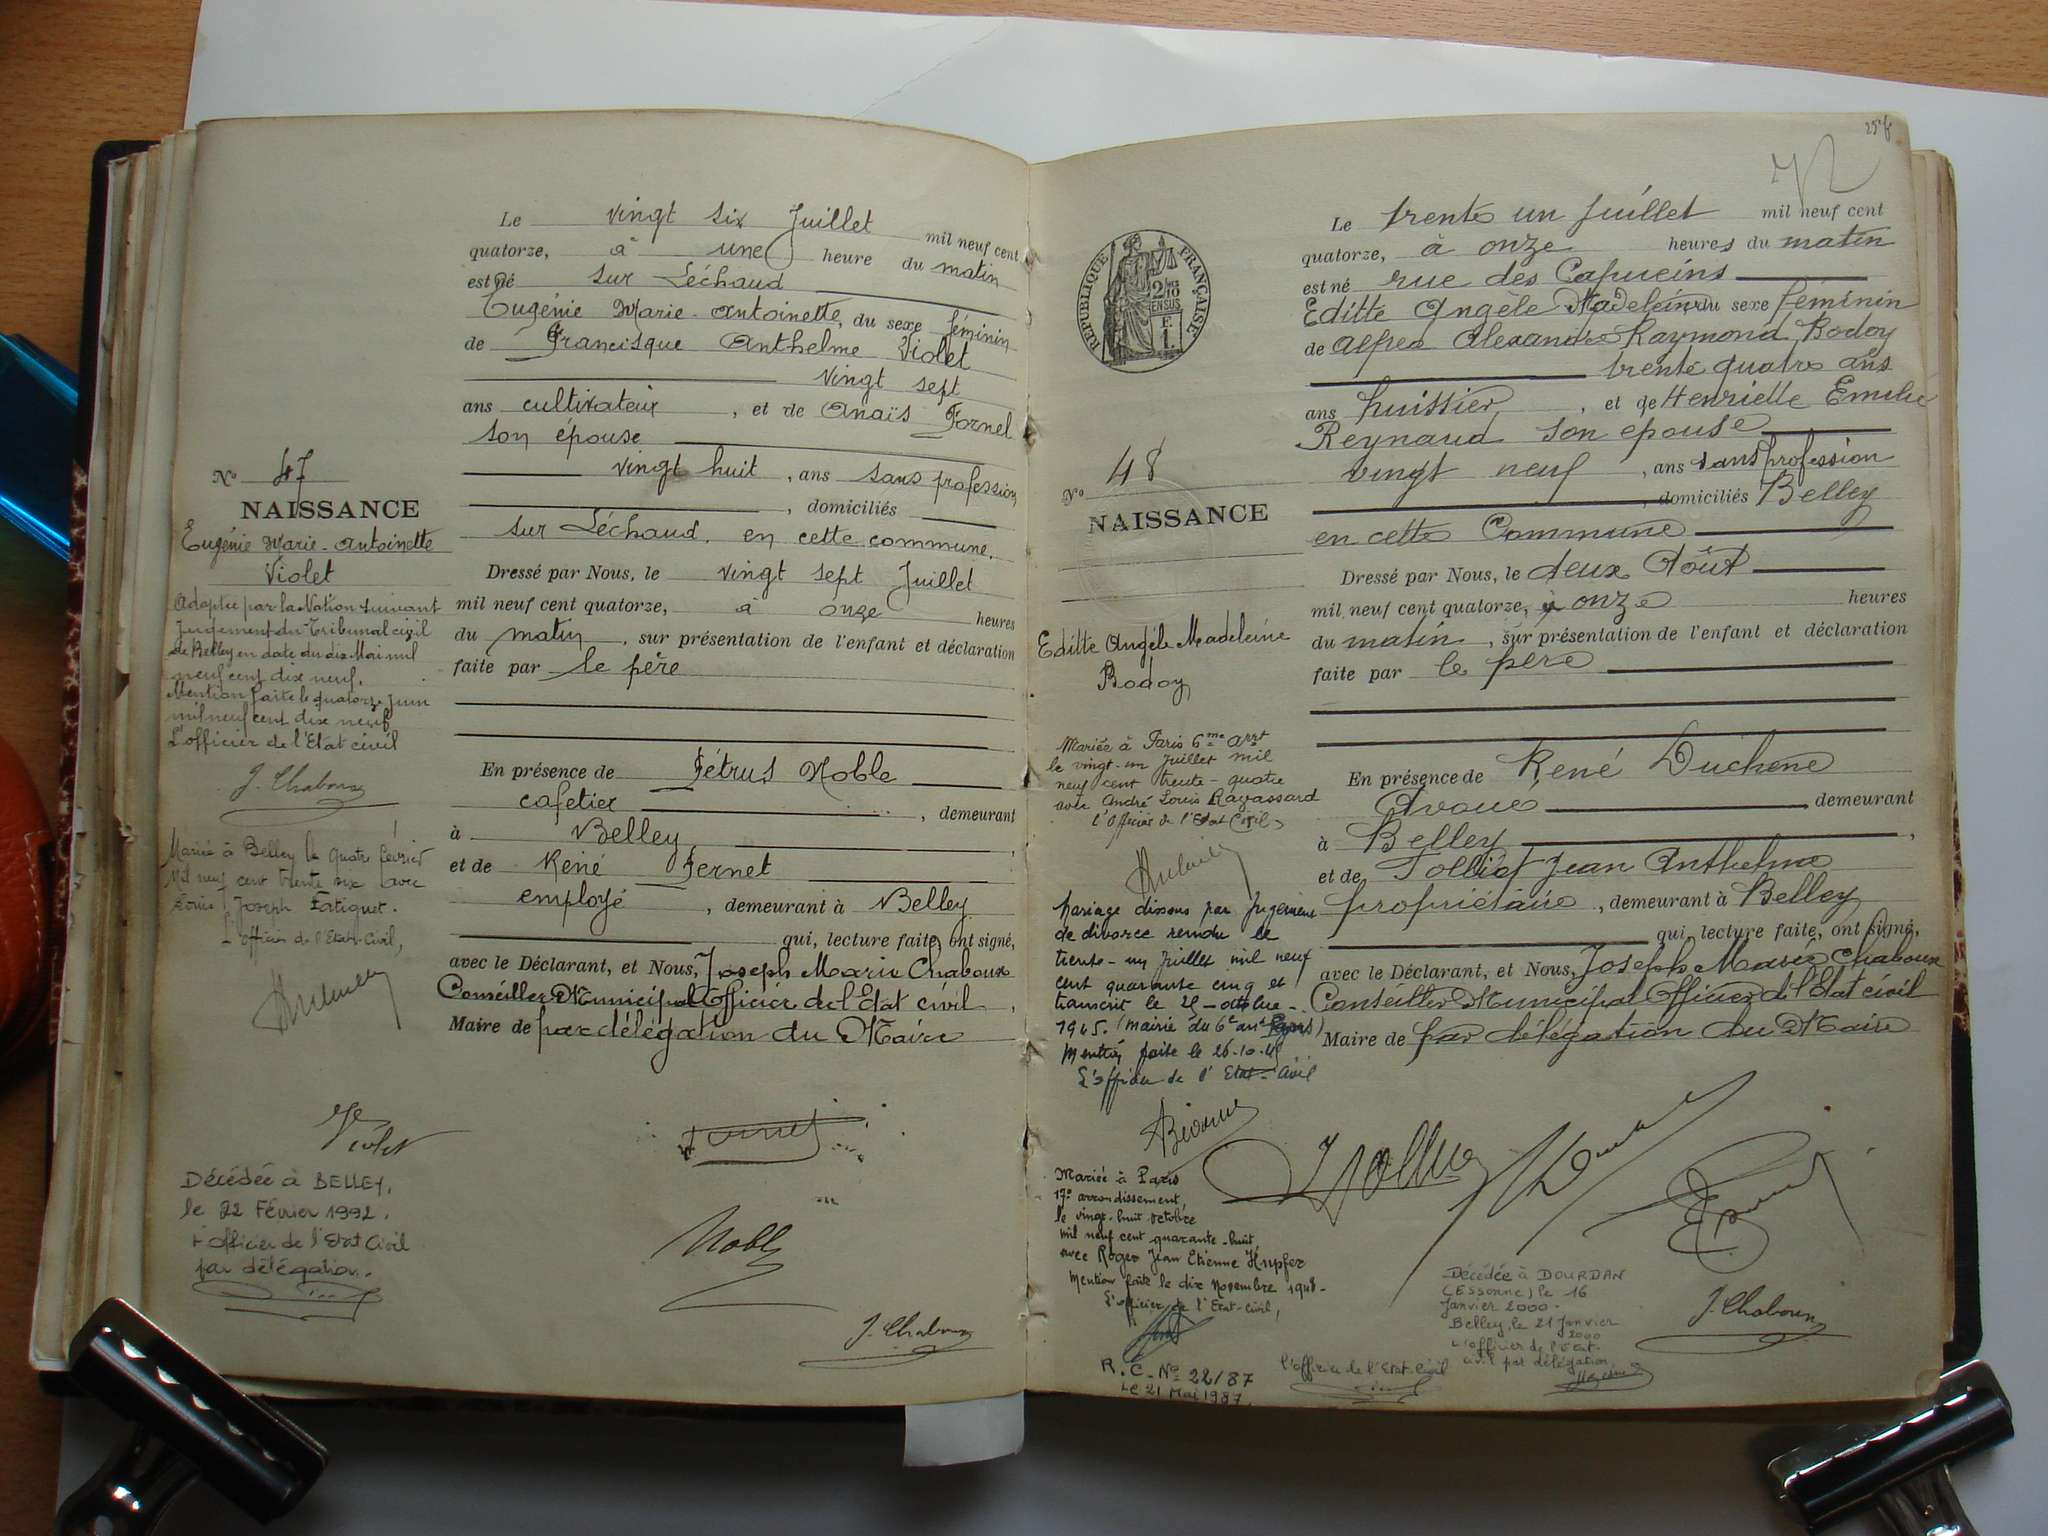 Le vingt six Juillet mil neuf cent
quatorze, à une heure du matin
est né sur Léchaud
Eugénie Marie-Antoinette, du sexe féminin
de Francisque Anthelme Violet
vingt sept
ans cultivateur, et de Anaïs Fornel
son épouse
vingt huit, ans sans profession
, domiciliés
sur Léchaud. en cette commune.
Dressé par Nous, le vingt sept Juillet
mil neuf cent quatorze, à onze heures
du matin, sur présentation de l'enfant et déclaration
faite par le père
En présence de Pétrus Noble
cafetier, demeurant
à Belley,
et de René Pernet
employé, demeurant à Belley
qui, lecture faite, ont signé,
avec le Déclarant, et Nous, Joseph Marie Chaboux
Conseiller Municipal Officier de l'Etat civil,
Maire de par délégation du Maire
N° 47
NAISSANCE
Eugénie Marie-Antoinette
Violet
Adoptée par la Nation suivant
Jugement du Tribunal civil
de Belley en date du dix Mai mil
neuf cent dix neuf.
Mention faite le quatorze Juin
mil neuf cent dix neuf
L'officier de l'Etat civil
J. Chaboux
Mariée à Belley le quatre février
Mil neuf cent trente six avec
Louis Joseph Fatiguet.
L'officier de l'Etat-Civil,
Violet
Décédée à BELLEY,
le 22 Février 1992.
L'officier de l'Etat Civil
par délégation.
Noble
J. Chaboux
25 f
RÉPUBLIQUE FRANÇAISE
Le trente un Juillet mil neuf cent
quatorze, à onze heures du matin
est né rue des Capucins
Editte Angèle Madeleine du sexe féminin
de Alfred Alexandre Raymond Rodoy
trente quatre ans
ans huissier, et de Henriette Emilie
Reynaud son épouse
vingt neuf, ans sans profession
, domiciliés Belley
en cette Commune
Dressé par Nous, le deux Août
mil neuf cent quatorze, à onze heures
du matin, sur présentation de l'enfant et déclaration
faite par le père
En présence de René Duchene
Avoué demeurant
à Belley,
et de Tolliet Jean Anthelme
propriétaire, demeurant à Belley
qui, lecture faite, ont signé,
avec le Déclarant, et Nous, Joseph Marie Chaboux
Conseiller Municipal Officier de l'Etat civil
Maire de par délégation du Maire
N° 48
NAISSANCE
Editte Angèle Madeleine
Rodoy
Mariée à Paris 6me arrt
le vingt-un Juillet mil
neuf cent trente-quatre
avec André Louis Ravassard
l'Officier de l'Etat Civil,
Mariage dissous par Jugement
de divorce rendu le
trente-un Juillet mil neuf
cent quarante cinq et
transcrit le 25-octobre-
1945. (Mairie du 6e arrt Paris)
Mention faite le 26-10-45
L'officier de l'Etat-Civil
Mariée à Paris
17e arrondissement,
le vingt-huit octobre
mil neuf cent quarante-huit,
avec Roger Jean Etienne Hupfer
Mention faite le dix Novembre 1948-
L'officier de l'Etat-Civil,
R.C. N° 22/87
Le 21 Mai 1987.
l'officier de l'Etat-Civil
Décédée à DOURDAN
(ESSONNE) le 16
Janvier 2000-
Belley, le 21 Janvier
2000
L'officier de l'Etat-
civil par délégation
J. Chaboux